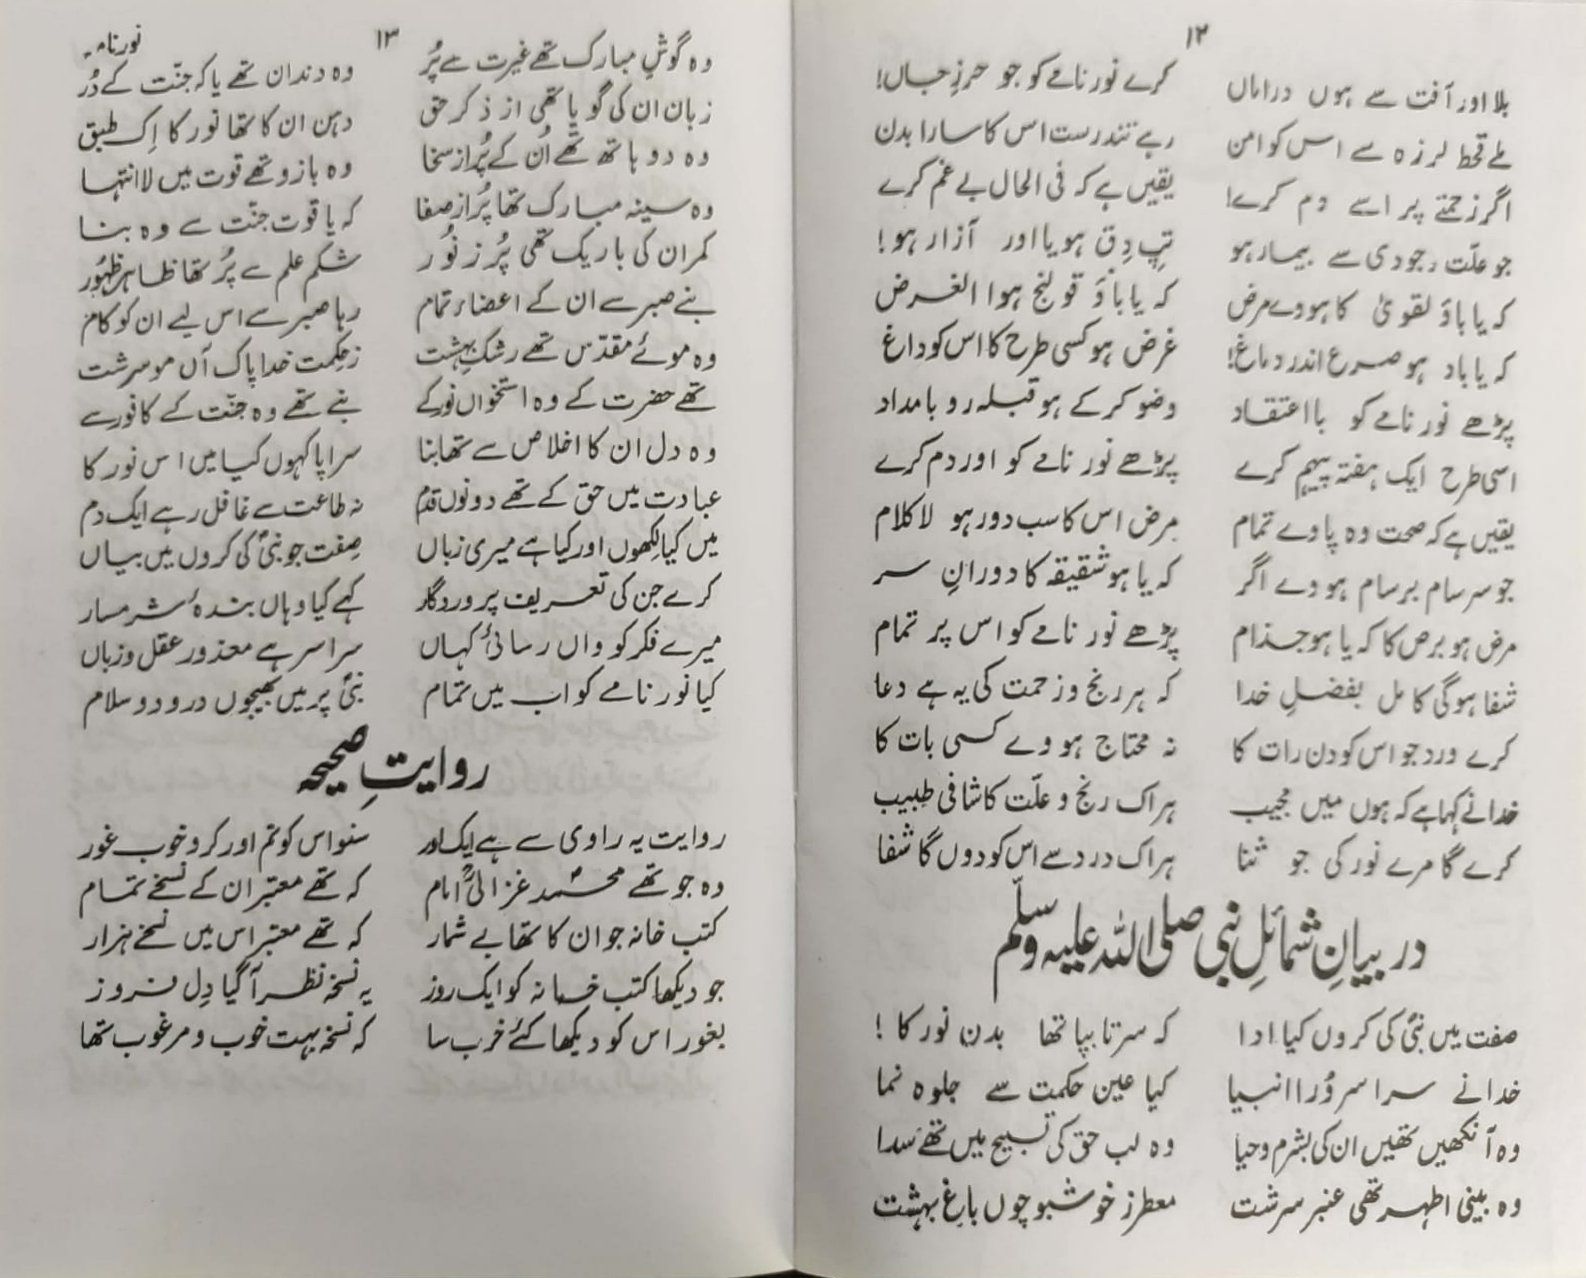 ۱۲
کرے نور نامے کو جو حرزِ جاں! بلا اور آفت سے ہوں در اماں
رہے تندرست اس کا سارا بدن ملے قحط لرزہ سے اس کو امن
یقیں ہے کہ فی الحال بے غم کرے اگر زحمتے پر اسے دم کرے!
تپِ دِق ہو یا اور آزار ہو! جو علّت وجودی سے بیمار ہو
کہ یا باؤ قولنج ہوا الغرض کہ یا باؤ لقویٰ کا ہووے مرض
غرض ہو کسی طرح کا اس کو داغ کہ یا باد ہو صرع اندر دماغ!
وضو کر کے ہو قبلہ رو بامداد پڑھے نور نامے کو بااعتقاد
پڑھے نور نامے کو اور دم کرے اسی طرح ایک ہفتہ پیہم کرے
مرض اس کا سب دور ہو لاکلام یقیں ہے کہ صحت وہ پاوے تمام
کہ یا ہو شقیقہ کا دورانِ سر جو سرسام برسام ہووے اگر
پڑھے نور نامے کو اس پر تمام مرض ہو برص کا کہ یا ہو جذام
کہ ہر رنج و زحمت کی یہ ہے دعا شفا ہوگی کامل بفضلِ خدا
نہ محتاج ہووے کسی بات کا کرے ورد جو اس کو دن رات کا
ہر اک رنج و علّت کا شافی طبیب خدا نے کہا ہے کہ ہوں میں مجیب
ہر اک درد سے اس کو دوں گا شفا کرے گا مرے نور کی جو ثنا
در بیانِ شمائلِ نبی صلی اللہ علیہ وسلّم
صفت میں نبیؐ کی کروں کیا ادا کہ سر تا بپا تھا بدن نور کا!
خدا نے سراسر وُرا انبیا کیا عین حکمت سے جلوہ نما
وہ آنکھیں تھیں ان کی بشرم و حیا وہ لب حق کی تسبیح میں تھے سَدا
وہ بینی اطہر تھی عنبر سرشت معطر ز خوشبو چوں باغِ بہشت
۱۳
نور نامہ
وہ گوشِ مبارک تھے غیرت سے پُر وہ دندان تھے یا کہ جنّت کے دُر
زبان ان کی گویا تھی از ذکر حق دہن ان کا تھا نور کا اِک طبق
وہ دو ہاتھ تھے اُن کے پُر از سخا وہ بازو تھے قوت میں لا انتہا
وہ سینہ مبارک تھا پُر از صفا کہ یاقوت جنّت سے وہ بنا
کمر ان کی باریک تھی پُر ز نُور شکم علم سے پُر تھا ظاہر ظہُور
بنے صبر سے ان کے اعضاء تمام رہا صبر سے اس لیے ان کو کام
وہ موئے مقدّس تھے رشکِ بہشت ز حکمت خدا پاک آں مو سرشت
تھے حضرت کے وہ استخواں نور کے بنے تھے وہ جنّت کے کافور سے
وہ دل ان کا اخلاص سے تھا بنا سراپا کہوں کیا میں اس نور کا
عبادت میں حق کے تھے دونوں قدم نہ طاعت سے غافل رہے ایک دم
میں کیا لکھوں اور کیا ہے میری زباں صِفت جو نبیؐ کی کروں میں بیاں
کرے جن کی تعریف پروردگار کہے کیا وہاں بندۂ شرمسار
میرے فکر کو واں رسائی کہاں سراسر ہے معذور عقل و زباں
کیا نور نامے کو اب میں تمام نبیؐ پر میں بھیجوں درود و سلام
روایتِ صحیحہ
روایت یہ راوی سے ہے ایک اور سنو اس کو تم اور کرو خوب غور
وہ جو تھے محمد غزالیؒ امام کہ تھے معتبر ان کے نسخے تمام
کتب خانہ جو ان کا تھا بے شمار کہ تھے معتبر اس میں نسخے ہزار
جو دیکھا کتب خانہ کو ایک روز یہ نسخہ نظر آ گیا دِل فروز
بغور اس کو دیکھا کئے خوب سا کہ نسخہ بہت خوب و مرغوب تھا